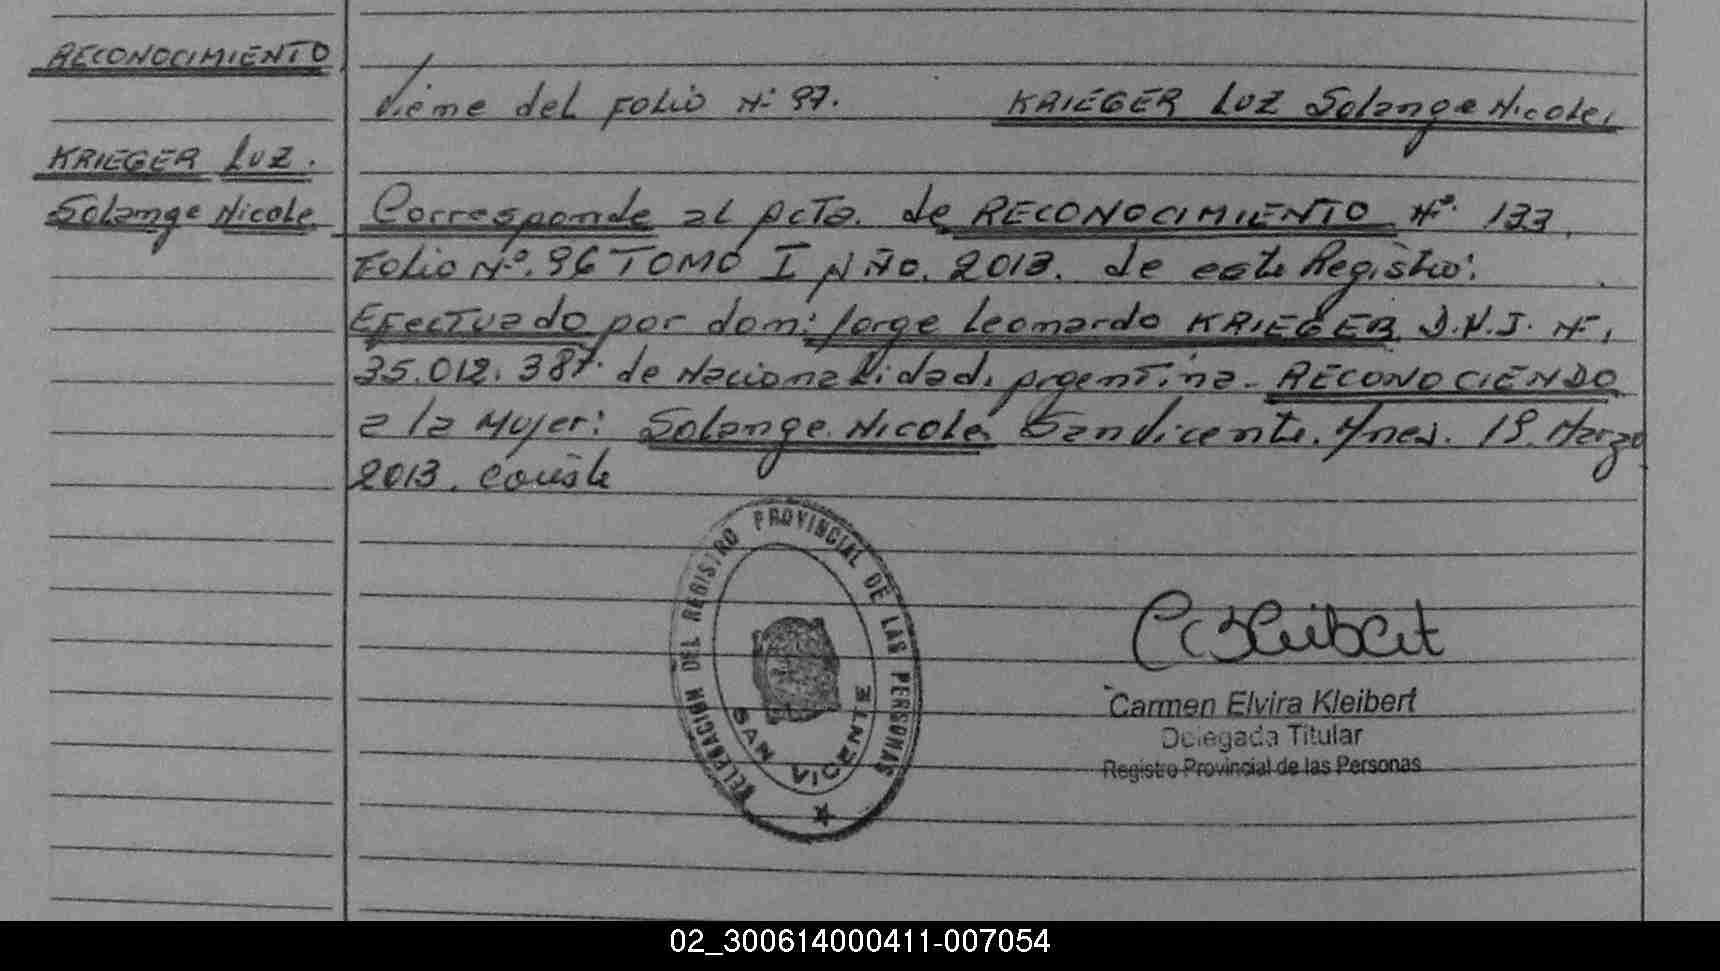 RECONOCIMIENTO
KRIEGER LUZ.
Solange Nicole
Viene del Folio Nº 97. KRIEGER LUZ Solange Nicole.
Corresponde al Acta. de RECONOCIMIENTO Nº. 133.
Folio Nº. 96 TOMO I AÑO. 2013. de este Registro:
Efectuado por don: Jorge Leonardo KRIEGER D.N.I. Nº.
35.012.387. de Nacionalidad, Argentina. RECONOCIENDO
a la Mujer: Solange Nicole. San Vicente. Mnes. 19. Marzo
2013. Conste
DELEGACION DEL REGISTRO PROVINCIAL DE LAS PERSONAS
SAN VICENTE
Carmen Elvira Kleibert
Delegada Titular
Registro Provincial de las Personas
02_300614000411-007054